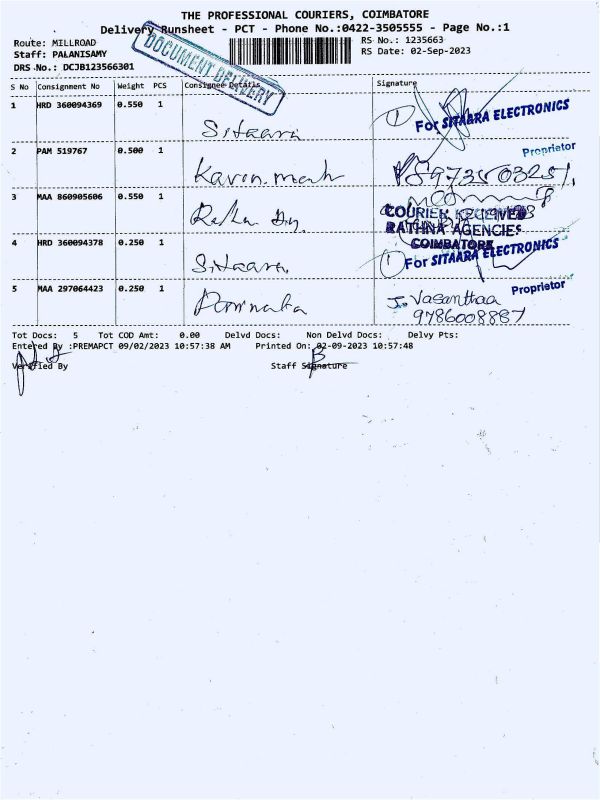 THE PROFESSIONAL COURIERS, COIMBATORE
Delivery Runsheet - PCT - Phone No.:0422-3505555 - Page No.:1
Route: MILLROAD
RS No.: 1235663
Staff: PALANISAMY
RS Date: 02-Sep-2023
DRS No.: DCJB123566301
DOCUMENT DELIVERY
S No Consignment No Weight PCS Consignee Details Signature
1 HRD 360094369 0.550 1
Sitaara
For SITAARA ELECTRONICS
Proprietor
2 PAM 519767 0.500 1
Kavin
3 MAA 860905606 0.550 1
COURIER RECEIVED
RATHNA AGENCIES
COIMBATORE
4 HRD 360094378 0.250 1
Sitaara
For SITAARA ELECTRONICS
Proprietor
5 MAA 297064423 0.250 1
J. Vasanthaa
9786008887
Tot Docs: 5 Tot COD Amt: 0.00 Delvd Docs: Non Delvd Docs: Delvy Pts:
Entered By :PREMAPCT 09/02/2023 10:57:38 AM Printed On: 02-09-2023 10:57:48
Verified By Staff Signature